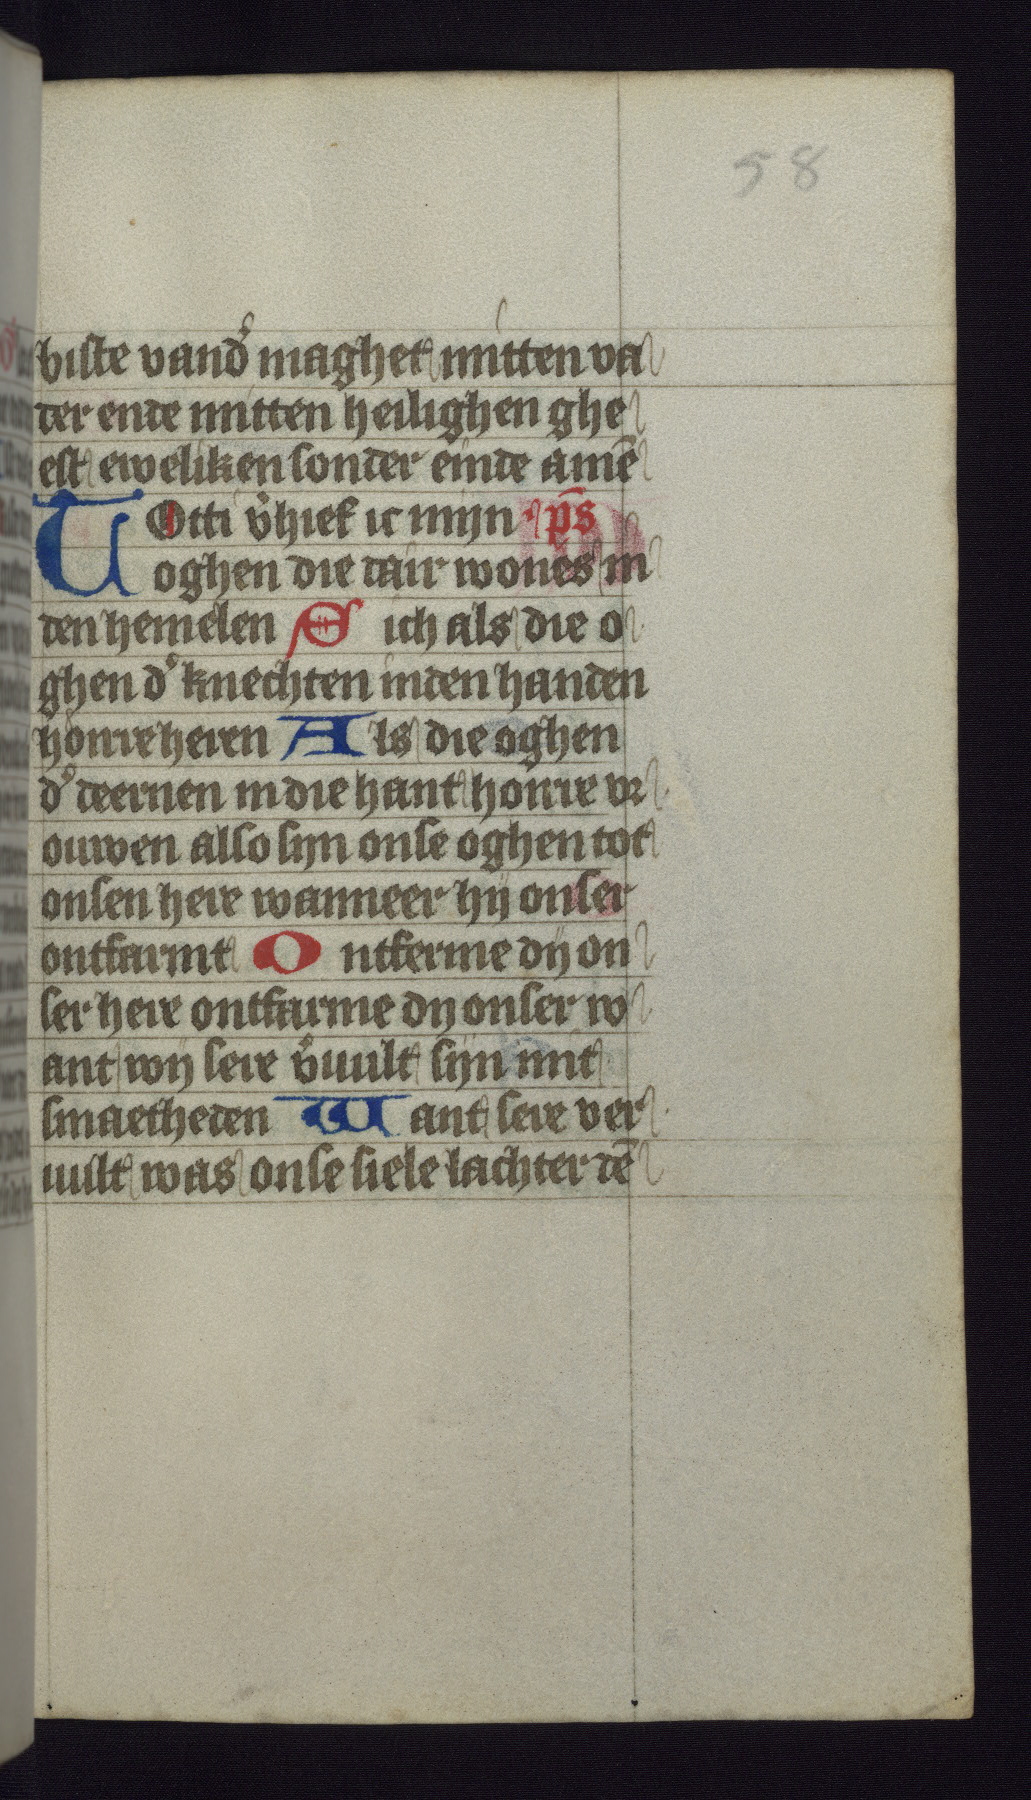 58
biste vand' maghet mitten va
der ende mitten heilighen ghe
est eweliken sonder einde amē
TOtti v'hief ic mijn · ps̄
oghen die dair wones in
den hemelen Sich als die o
ghen d' knechten inden handen
hoͤnre heren Als die oghen
d' deernen in die hant honre vr
ouwen also sijn onse oghen tot
onsen here wanneer hij onser
ontfarmt Ontferme dij on
ser here ontfarme dij onser w
ant wij sere v'vult sijn mit
smaetheden Want sere ver
vult was onse siele lachter dē